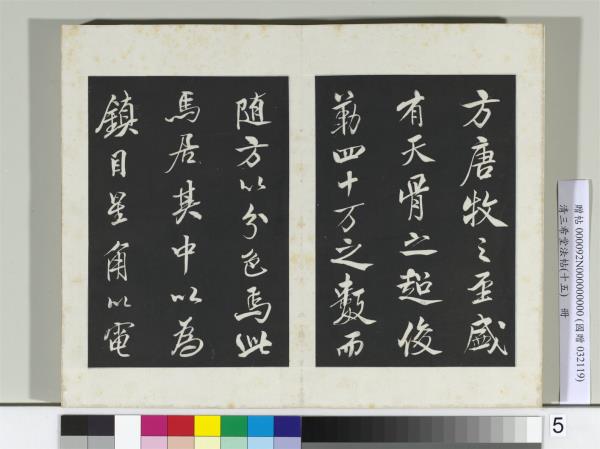 方唐牧之至盛
有天骨之超俊
勒四十万之數而
随方以分色焉此
馬居其中以為
鎮目星角以電
贈帖 000092N000000000 (國贈 032119)
清三希堂法帖(十五) 冊
5